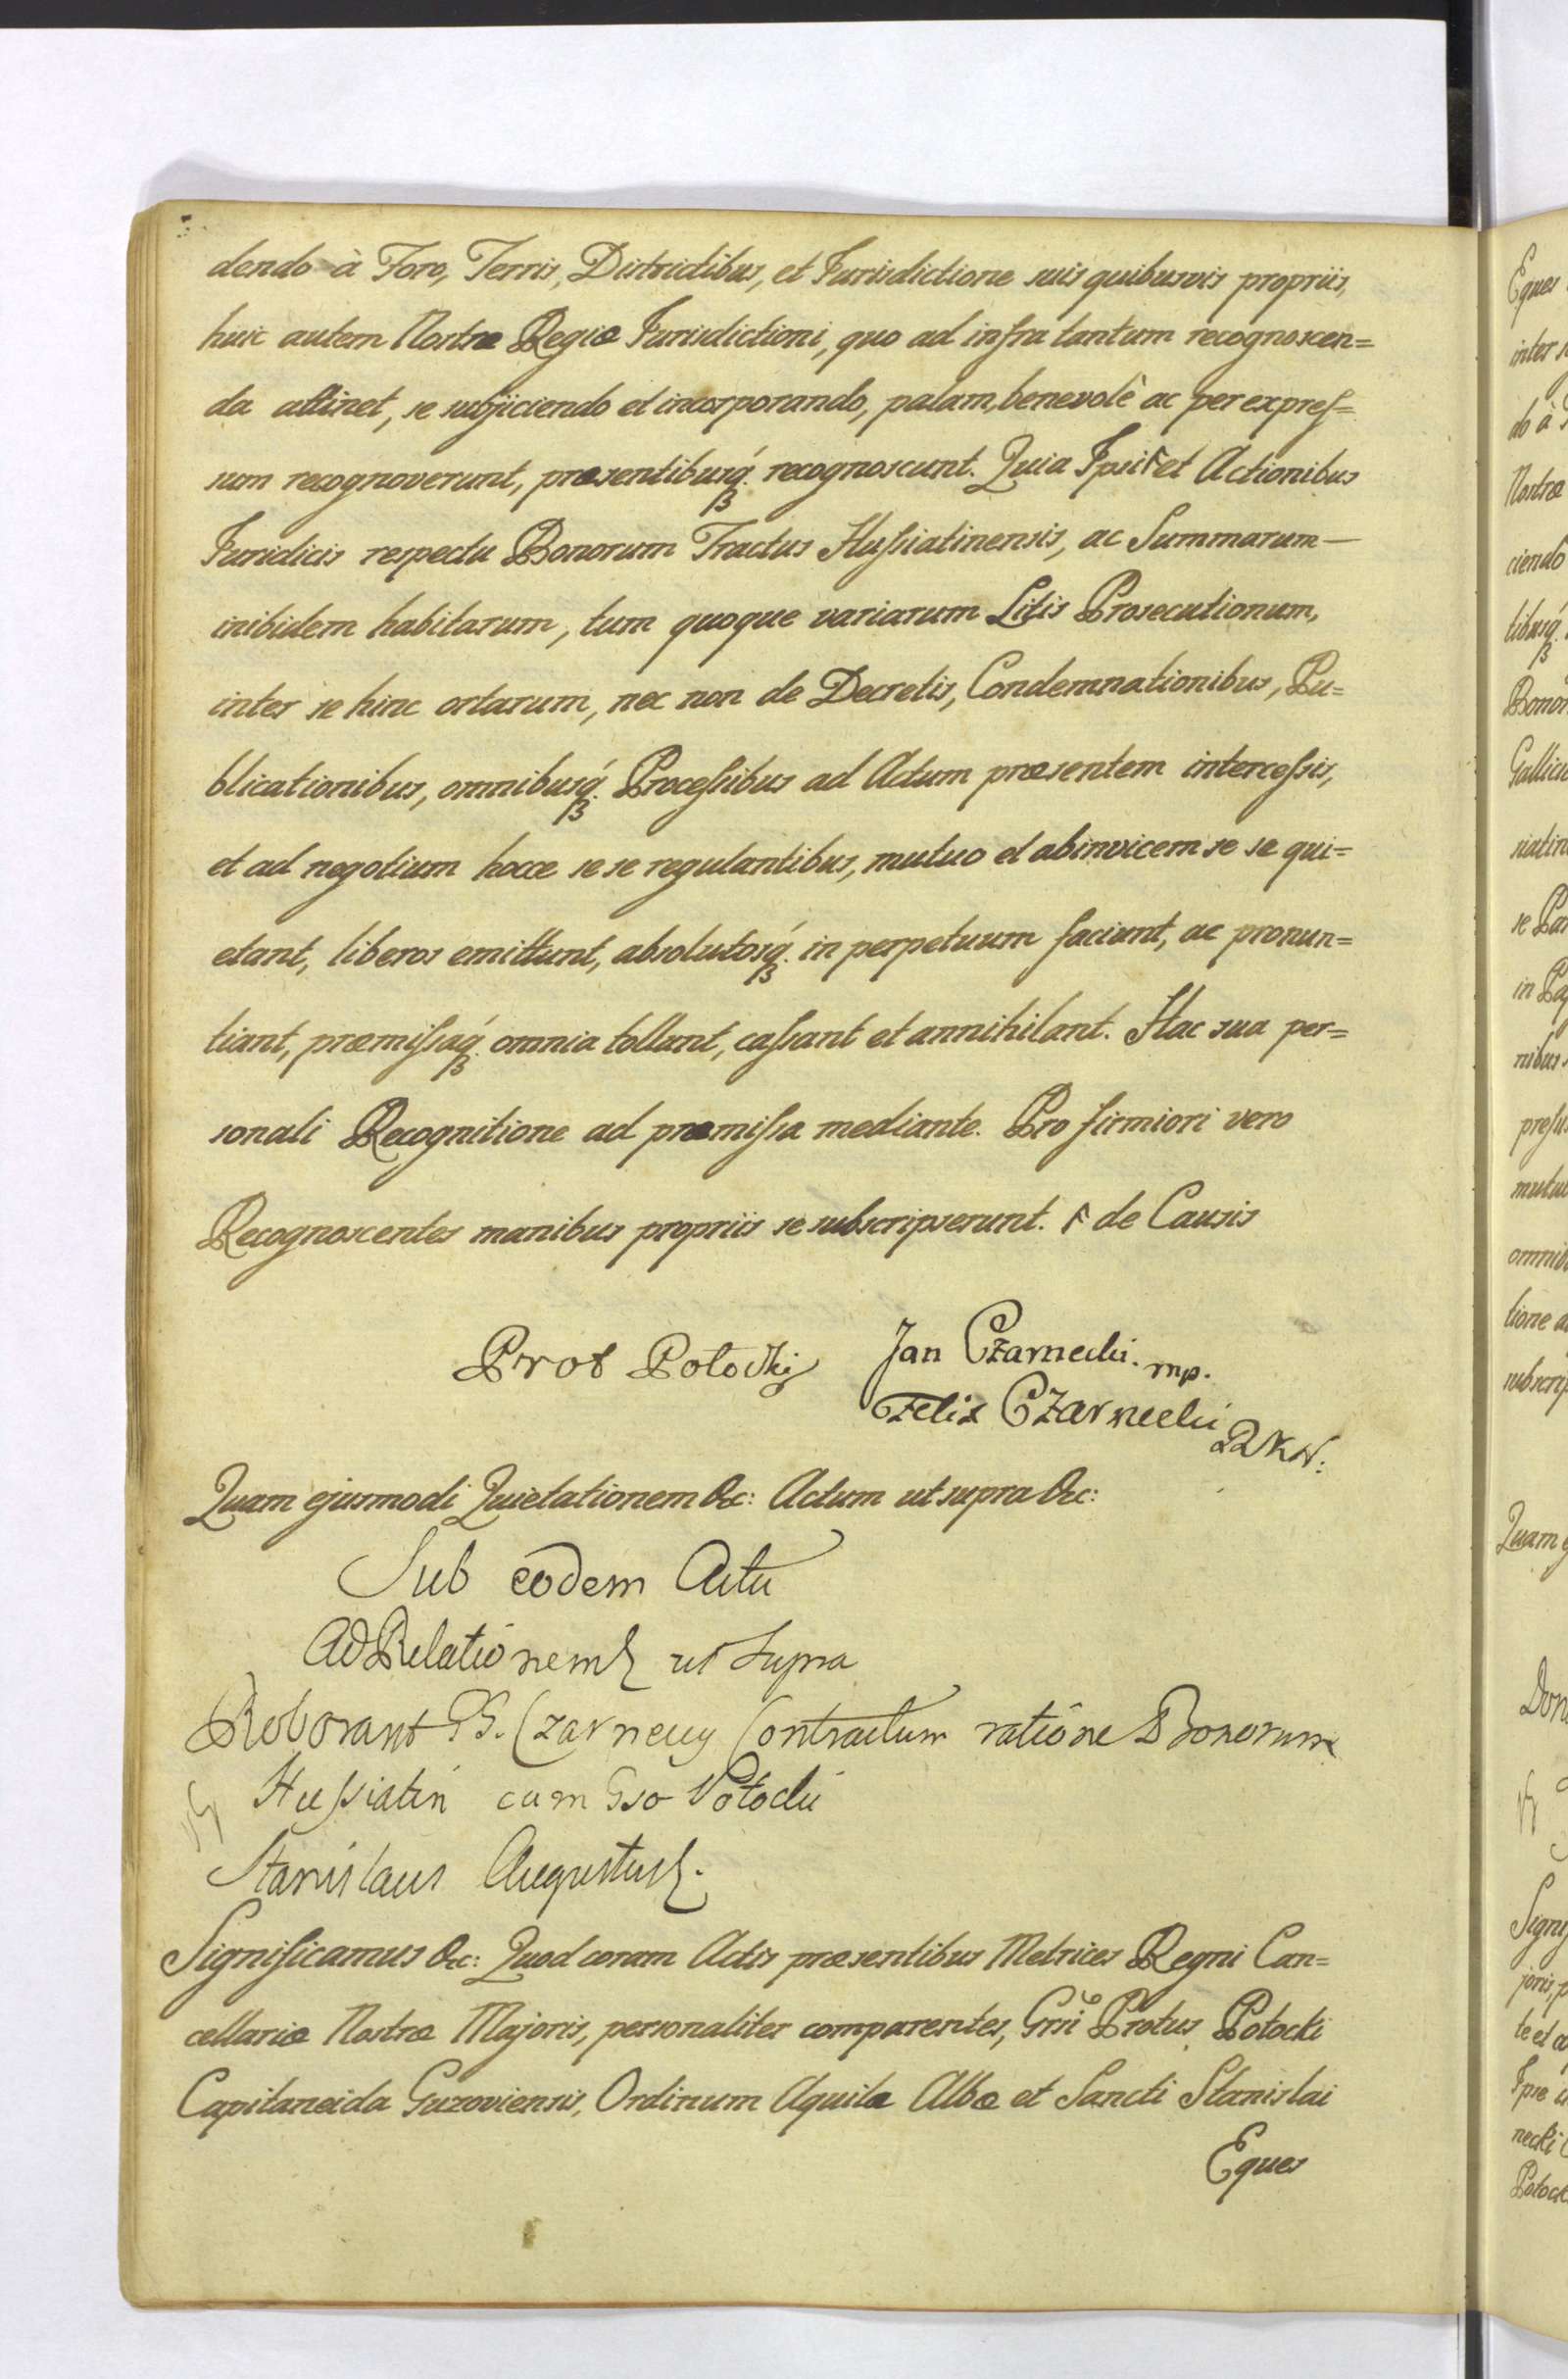 dendo à Foro, Terris, Districtibus, et Jurisdictione suis quibusvis propriis,
huic autem Nostræ Regiæ Jurisdictioni, quo ad infra tantum recognoscen=
da attinet, se subjiciendo et incorporando, palam, benevolè ac per expreſ=
sum recognoverunt, præsentibusq́. recognoscunt. Quia Ipsi Γ et Actionibus
Juridicis respectu Bonorum Tractus Huſsiatinensis, ac Summarum—
inibidem habitarum, tum quoque variarum Litis Prosecutionum,
inter se hinc ortarum, nec non de Decretis, Condemnationibus, Pu=
blicationibus, omnibusq́. Proceſsibus ad Actum præsentem interceſsis,
et ad negotium hocce se se regulantibus, mutuo et abinvicem se se qui=
etant, liberos emittunt, absolutosq́. in perpetuum faciunt, ac pronun=
tiant, præmiſsaq́. omnia tollunt, caſsant et annihilant. Hac sua per=
sonali Recognitione ad præmiſsa mediante. Pro firmiori vero
Recognoscentes manibus propriis se subscripserunt. Γ de Causis
Prot Potocki Jan Czarnecki. mp.
Felix Czarnecki
Quam ejusmodi Quietationem &c: Actum ut supra &c:
Sub eodem Actu
Ad Relationem ut supra
Roborant GG. Czarneccy Contractum ratione Bonorum
Huſsiatin cum Gso Potocki
Stanislaus Augustus
Significamus &c: Quod coram Actis præsentibus Metrices Regni Can=
cellariæ Nostræ Majoris, personaliter comparentes, Gsi Protus Potocki
Capitaneida Guzoviensis, Ordinum Aquilæ Albæ et Sancti Stanislai
Eques